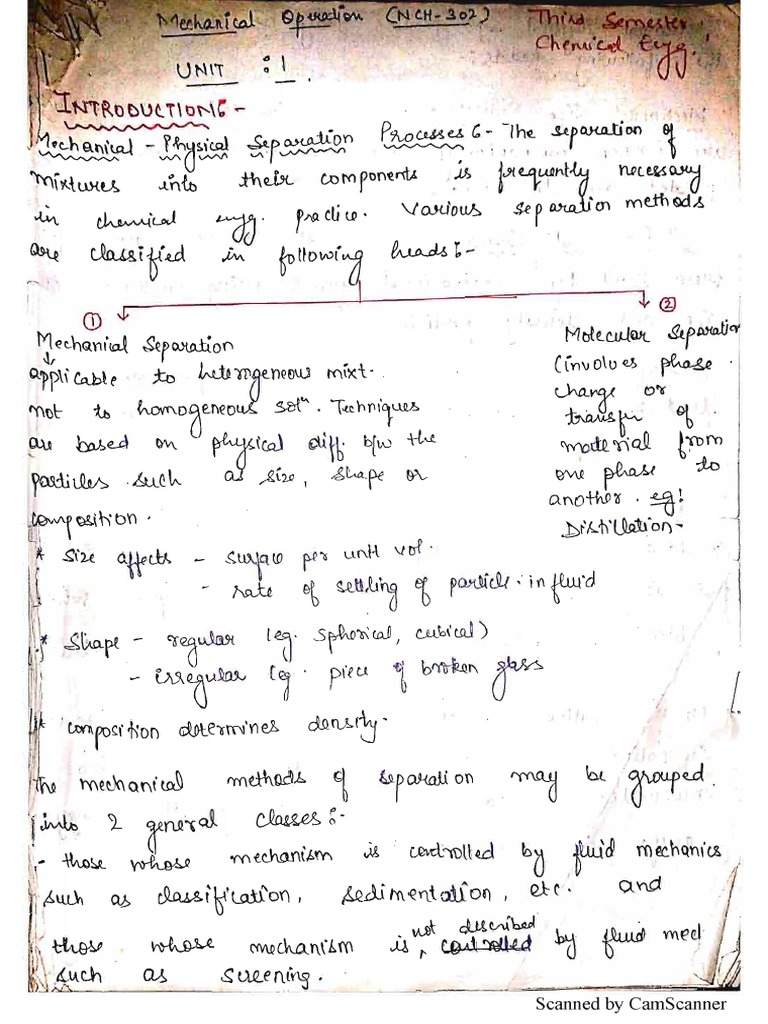 Mechanical Operation (NCH-302)
Third Semester
Chemical Engg.
UNIT :1.
INTRODUCTION:-
Mechanical - Physical Separation Processes :- The separation of
mixtures into their components is frequently necessary
in chemical engg. practice. Various separation methods
are classified in following heads :-
① ②
Mechanial Separation
↓
applicable to heterogneous mixt.
not to homogeneous solⁿ. Techniques
are based on physical diff. b/w the
particles such as size, shape or
composition.
Molecular Separation
(involves phase
change or
transfer of
material from
one phase to
another. eg!
Distillation-
* Size affects - surface per unit vol.
- rate of settling of particle. in fluid
* Shape - regular (eg. Spherical, cubical)
- irregular (eg. piece of broken glass
* composition determines density.
The mechanical methods of separation may be grouped
into 2 general classes :-
:- those whose mechanism is controlled by fluid mechanics
such as classification, sedimentation, etc. and
those whose mechanism is not described controlled by fluid mec
such as screening.
Scanned by CamScanner